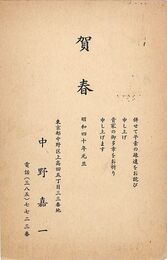 賀春
併せて平素の疎遠をお詫び
申し上げ
貴家の御多幸をお祈り
申し上げます
昭和四十年元旦
東京都中野区上高田五丁目三三番地
中野嘉一
電話(三八五)七七二三番